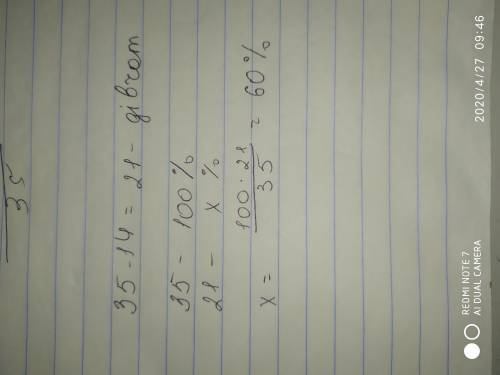 35
35 - 14 = 21 - gibrom
35 - 100%
21 - x %
x = 100 · 21 / 35 = 60%
REDMI NOTE 7
AI DUAL CAMERA
2020/4/27 09:46